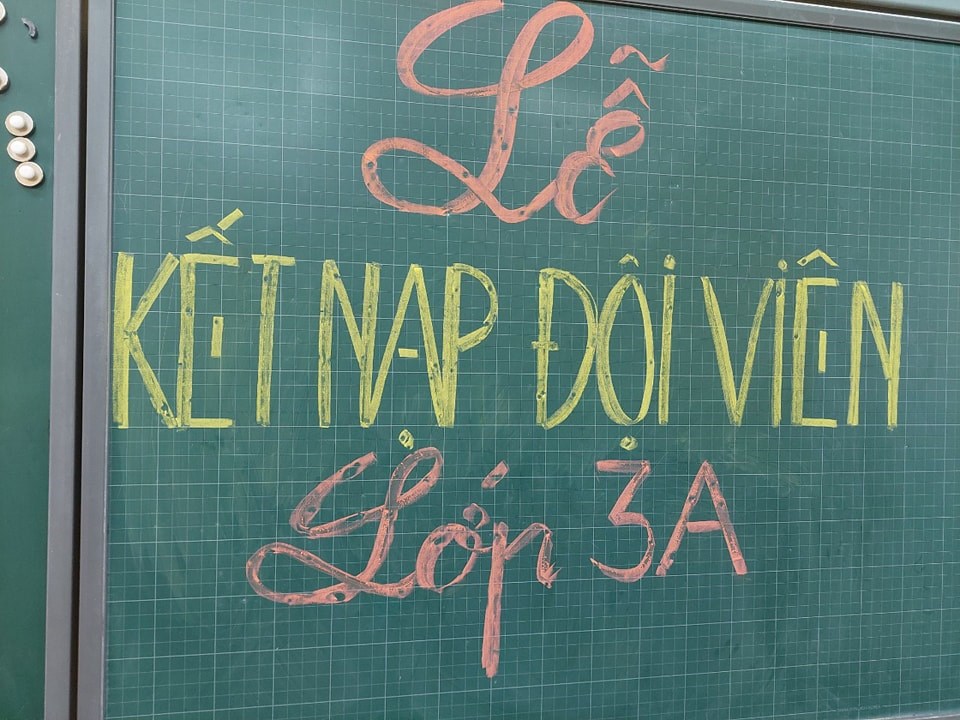 Lễ
KẾT NẠP ĐỘI VIÊN
Lớp 3A